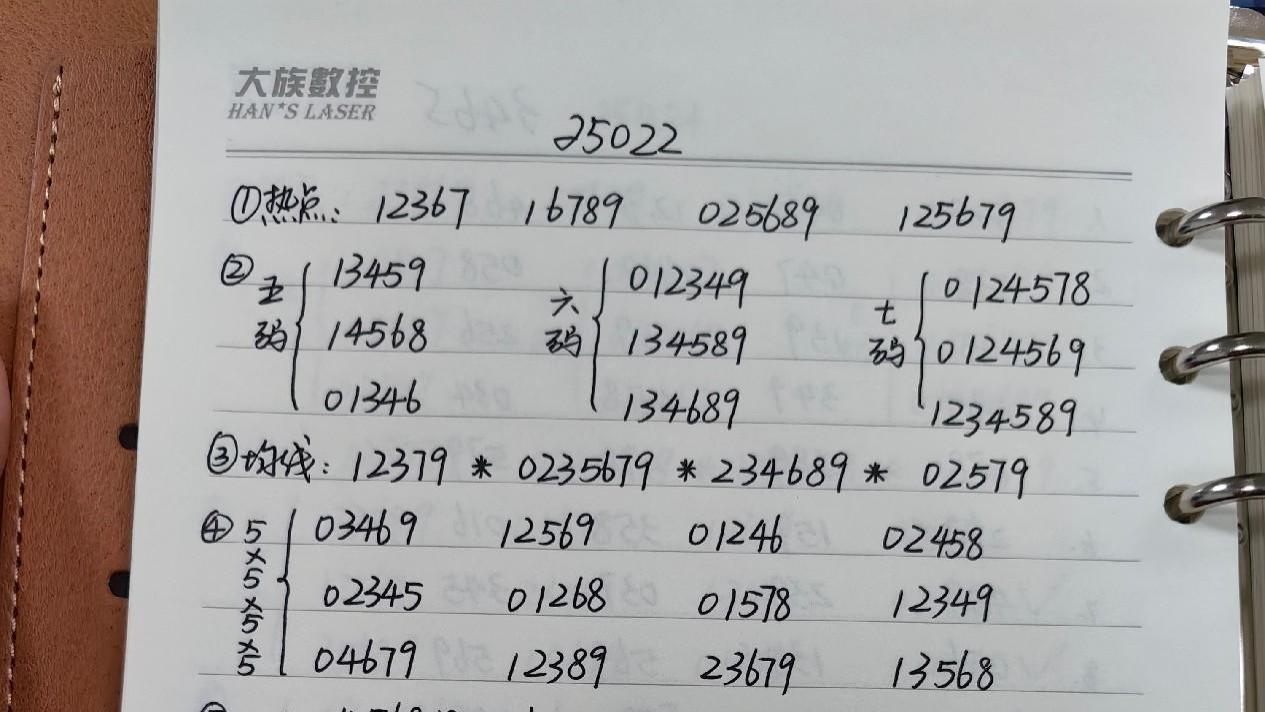 大族數控
HAN*S LASER
25022
①热点: 12367 16789 025689 125679
② 五码 { 13459 六码 { 012349 七码 { 0124578
14568 134589 0124569
01346 134689 1234589
③均线: 12379 * 0235679 * 234689 * 02579
④ 5×5×5×5 { 03469 12569 01246 02458
02345 01268 01578 12349
04679 12389 23679 13568